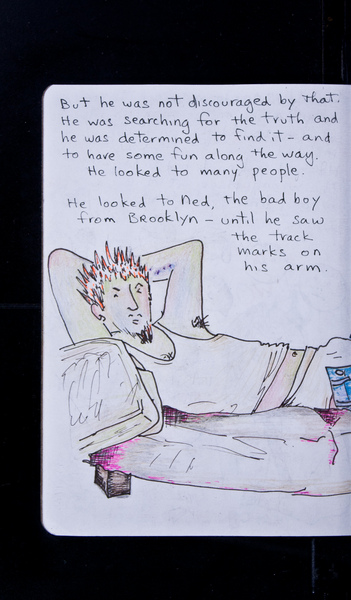 But he was not discouraged by that.
He was searching for the truth and
he was determined to find it - and
to have some fun along the way.
He looked to many people.
He looked to Ned, the bad boy
from Brooklyn - until he saw
the track
marks on
his arm.